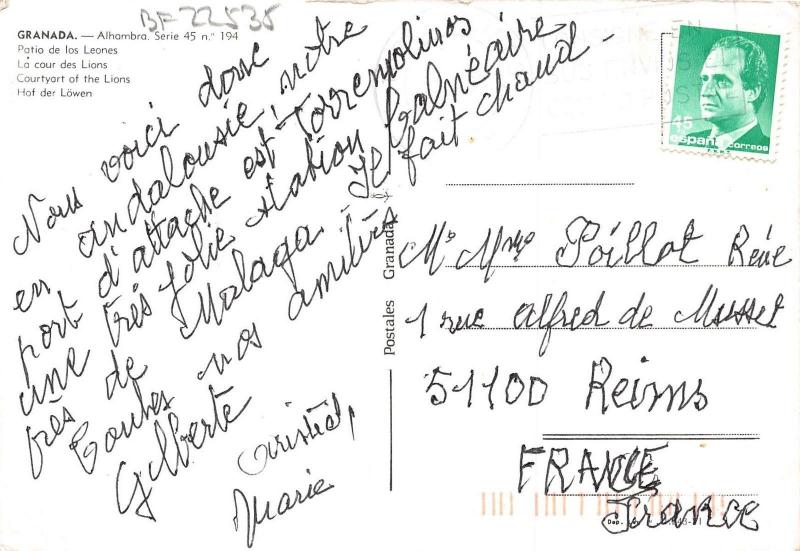 BF22535
GRANADA. — Alhambra. Serie 45 n.º 194
Patio de los Leones
La cour des Lions
Courtyart of the Lions
Hof der Löwen
Nous voici donc
en andalousie, notre
port d'attache est Torremolinos
une très jolie station balnéaire
très de Malaga. Il fait chaud -
Toutes nos amitiés
Gilberte
Aristid,
Marie
Postales Granada
45
españa
correos
Mr Mme Poillot René
1 rue alfred de Musset
51100 Reims
FRANCE
France